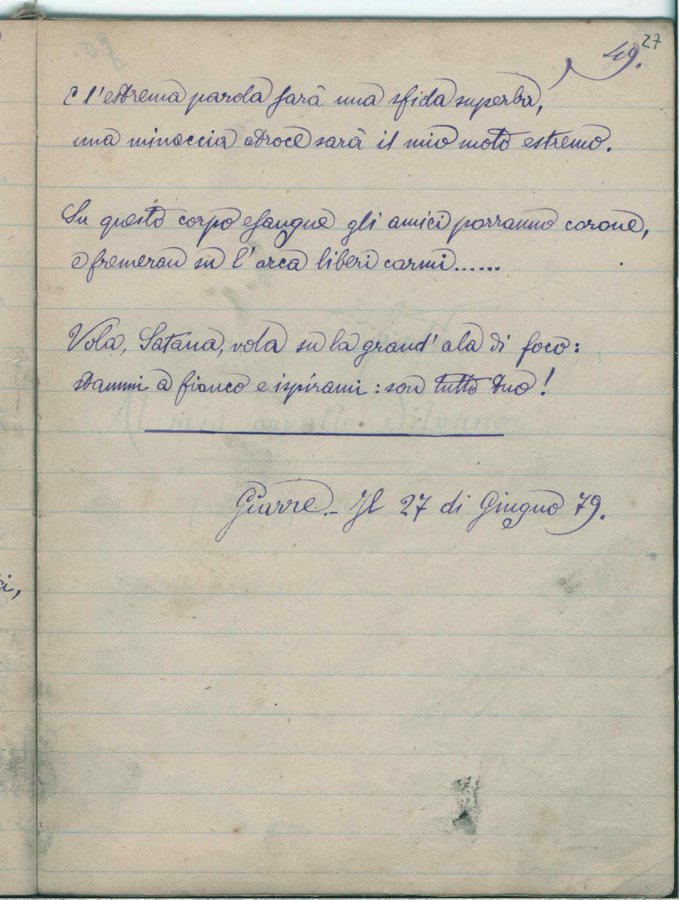 27
49.
E l'estrema parola sarà una sfida superba,
una minaccia atroce sarà il mio moto estremo.
Su questo corpo esangue gli amici porranno corone,
e fremeran su l'arca liberi carmi......
Vola, Satana, vola su la grand'ala di foco:
stammi a fianco e ispirami: son tutto tuo!
Giarre.- Il 27 di Giugno 79.